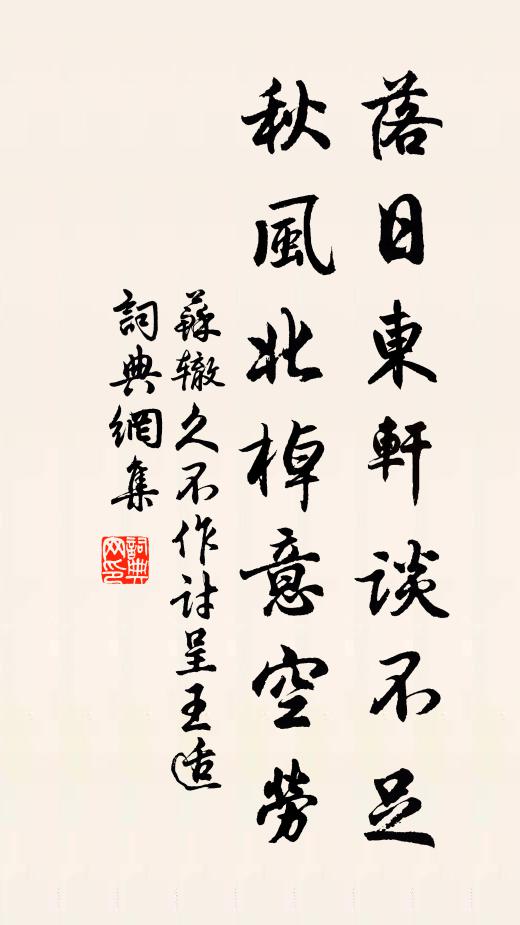 落日東軒談不足
秋風北棹意空勞
蘇轍久不作詩呈王适
詞典網集
詞典网印